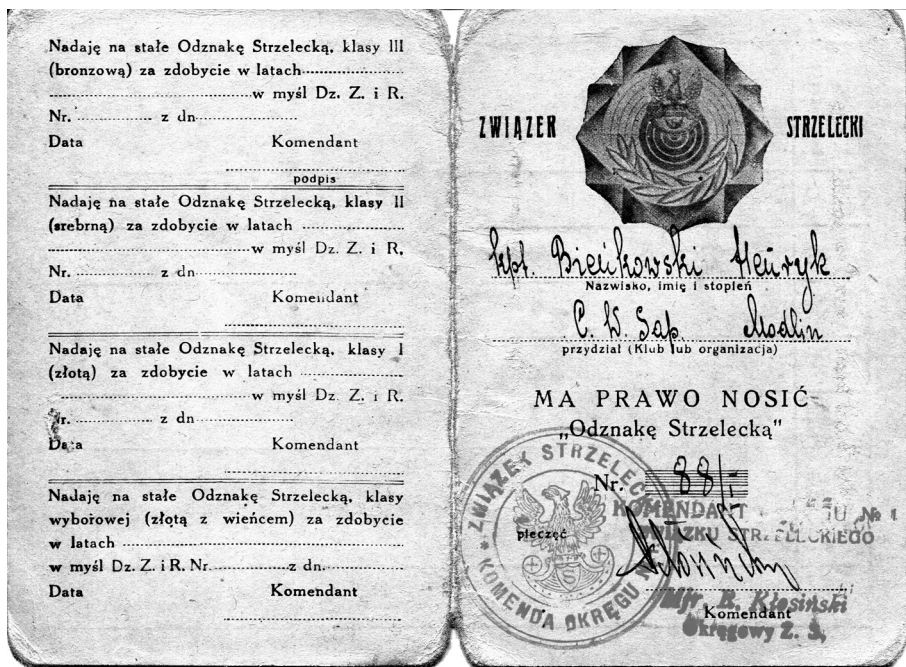 Nadaję na stałe Odznakę Strzelecką, klasy III
(bronzową) za zdobycie w latach
w myśl Dz. Z. i R.
Nr. z dn
Data Komendant
podpis
Nadaję na stałe Odznakę Strzelecką, klasy II
(srebrną) za zdobycie w latach
w myśl Dz. Z. i R.
Nr. z dn
Data Komendant
Nadaję na stałe Odznakę Strzelecką, klasy I
(złotą) za zdobycie w latach
w myśl Dz. Z. i R.
Nr. z dn
Data Komendant
Nadaję na stałe Odznakę Strzelecką, klasy
wyborowej (złotą z wieńcem) za zdobycie
w latach
w myśl Dz. Z. i R. Nr. z dn.
Data Komendant
ZWIĄZEK STRZELECKI
kpt. Bieńkowski Henryk
Nazwisko, imię i stopień
C. W. Sap. Modlin
przydział (Klub lub organizacja)
MA PRAWO NOSIĆ
„Odznakę Strzelecką"
Nr. 88/I
ZWIĄZEK STRZELECKI
KOMENDA OKRĘGU
pieczęć
KOMENDANT № 1
ZWIĄZKU STRZELECKIEGO
Mjr. B. Kłosiński
Komendant
Okręgowy Z. S.